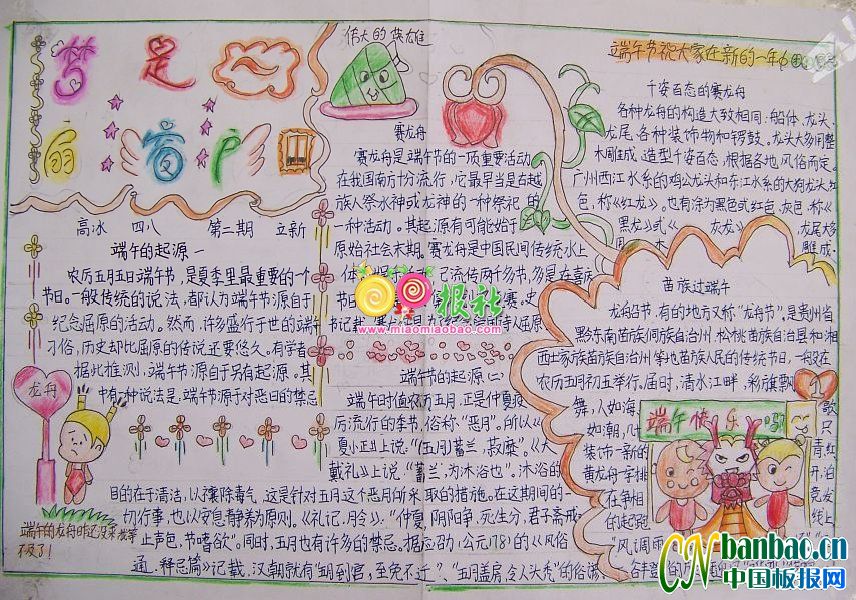 梦是
扇窗户
伟大的英雄
端午节祝大家在新的一年
高冰 四八 第二期 立新
端午的起源一
农历五月五日端午节,是夏季里最重要的一个
节日。一般传统的说法,都认为端午节源自于
纪念屈原的活动。然而,许多盛行于世的端午
习俗,历史却比屈原的传说还要悠久。有学者
据此推测,端午节源自于另有起源。其
中有一种说法是,端午节源于对恶日的禁忌
龙舟
端午的龙舟咋还没来
不及了!
目的在于清洁,以禳除毒气,这是针对五月这个恶月所采取的措施。在这期间的一
切行事,也以安息静养为原则。《礼记·月令》:“仲夏,阴阳争,死生分,君子斋戒
止声色,节嗜欲”。同时,五月也有许多的禁忌。据应劭(公元178)的《风俗
通·释忌篇》记载,汉朝就有“五月到官,至免不迁”、“五月盖房,令人头秃”的俗谚
赛龙舟
赛龙舟是端午节的一项重要活动
在我国南方十分流行,它最早当是古越
族人祭水神或龙神的一种祭祀的
一种活动。其起源有可能始于
原始社会末期。赛龙舟是中国民间传统水上
己流传两千多节,多是在喜庆
根社
www.miaomiaobao.com
端午节的起源(二)
端午时值农历五月,正是仲夏疫
厉流行的季节,俗称:“恶月”。所以《
夏小正》上说,“(五月)蓄兰,菽糜”。《大
戴礼》上说,“蓄兰,为沐浴也”。沐浴的
千姿百态的赛龙舟
各种龙舟的构造大致相同:船体、龙头、
龙尾、各种装饰物和锣鼓。龙头大多用整
木雕成,造型千姿百态,根据各地风俗而定。
广州西江水系的鸡公龙头和东江水系的大狗龙头红
色,称《红龙》。也有涂为黑色或红色、灰色,称《
黑龙》或《 灰龙》 龙尾多
用 木 雕成.
苗族过端午
龙船节,有的地方又称“龙舟节”,是贵州省
黔东南苗族侗族自治州、松桃苗族自治县和湘
西土家族苗族自治州等地苗族人民的传统节日,一般在
农历五月初五举行。届时,清水江畔,彩旗飘
舞,人如海
如潮,几十
装饰一新的
黄龙舟一字排
在争相
的起跑
“风调雨
端午快乐
1
歌
只
青,红
开,泊
竞发
线上
CN banbao.cn
中国板报网